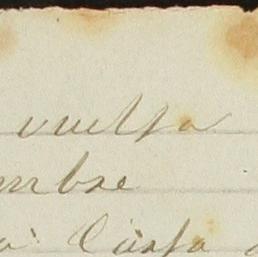 vuelta
mbre
a Casa